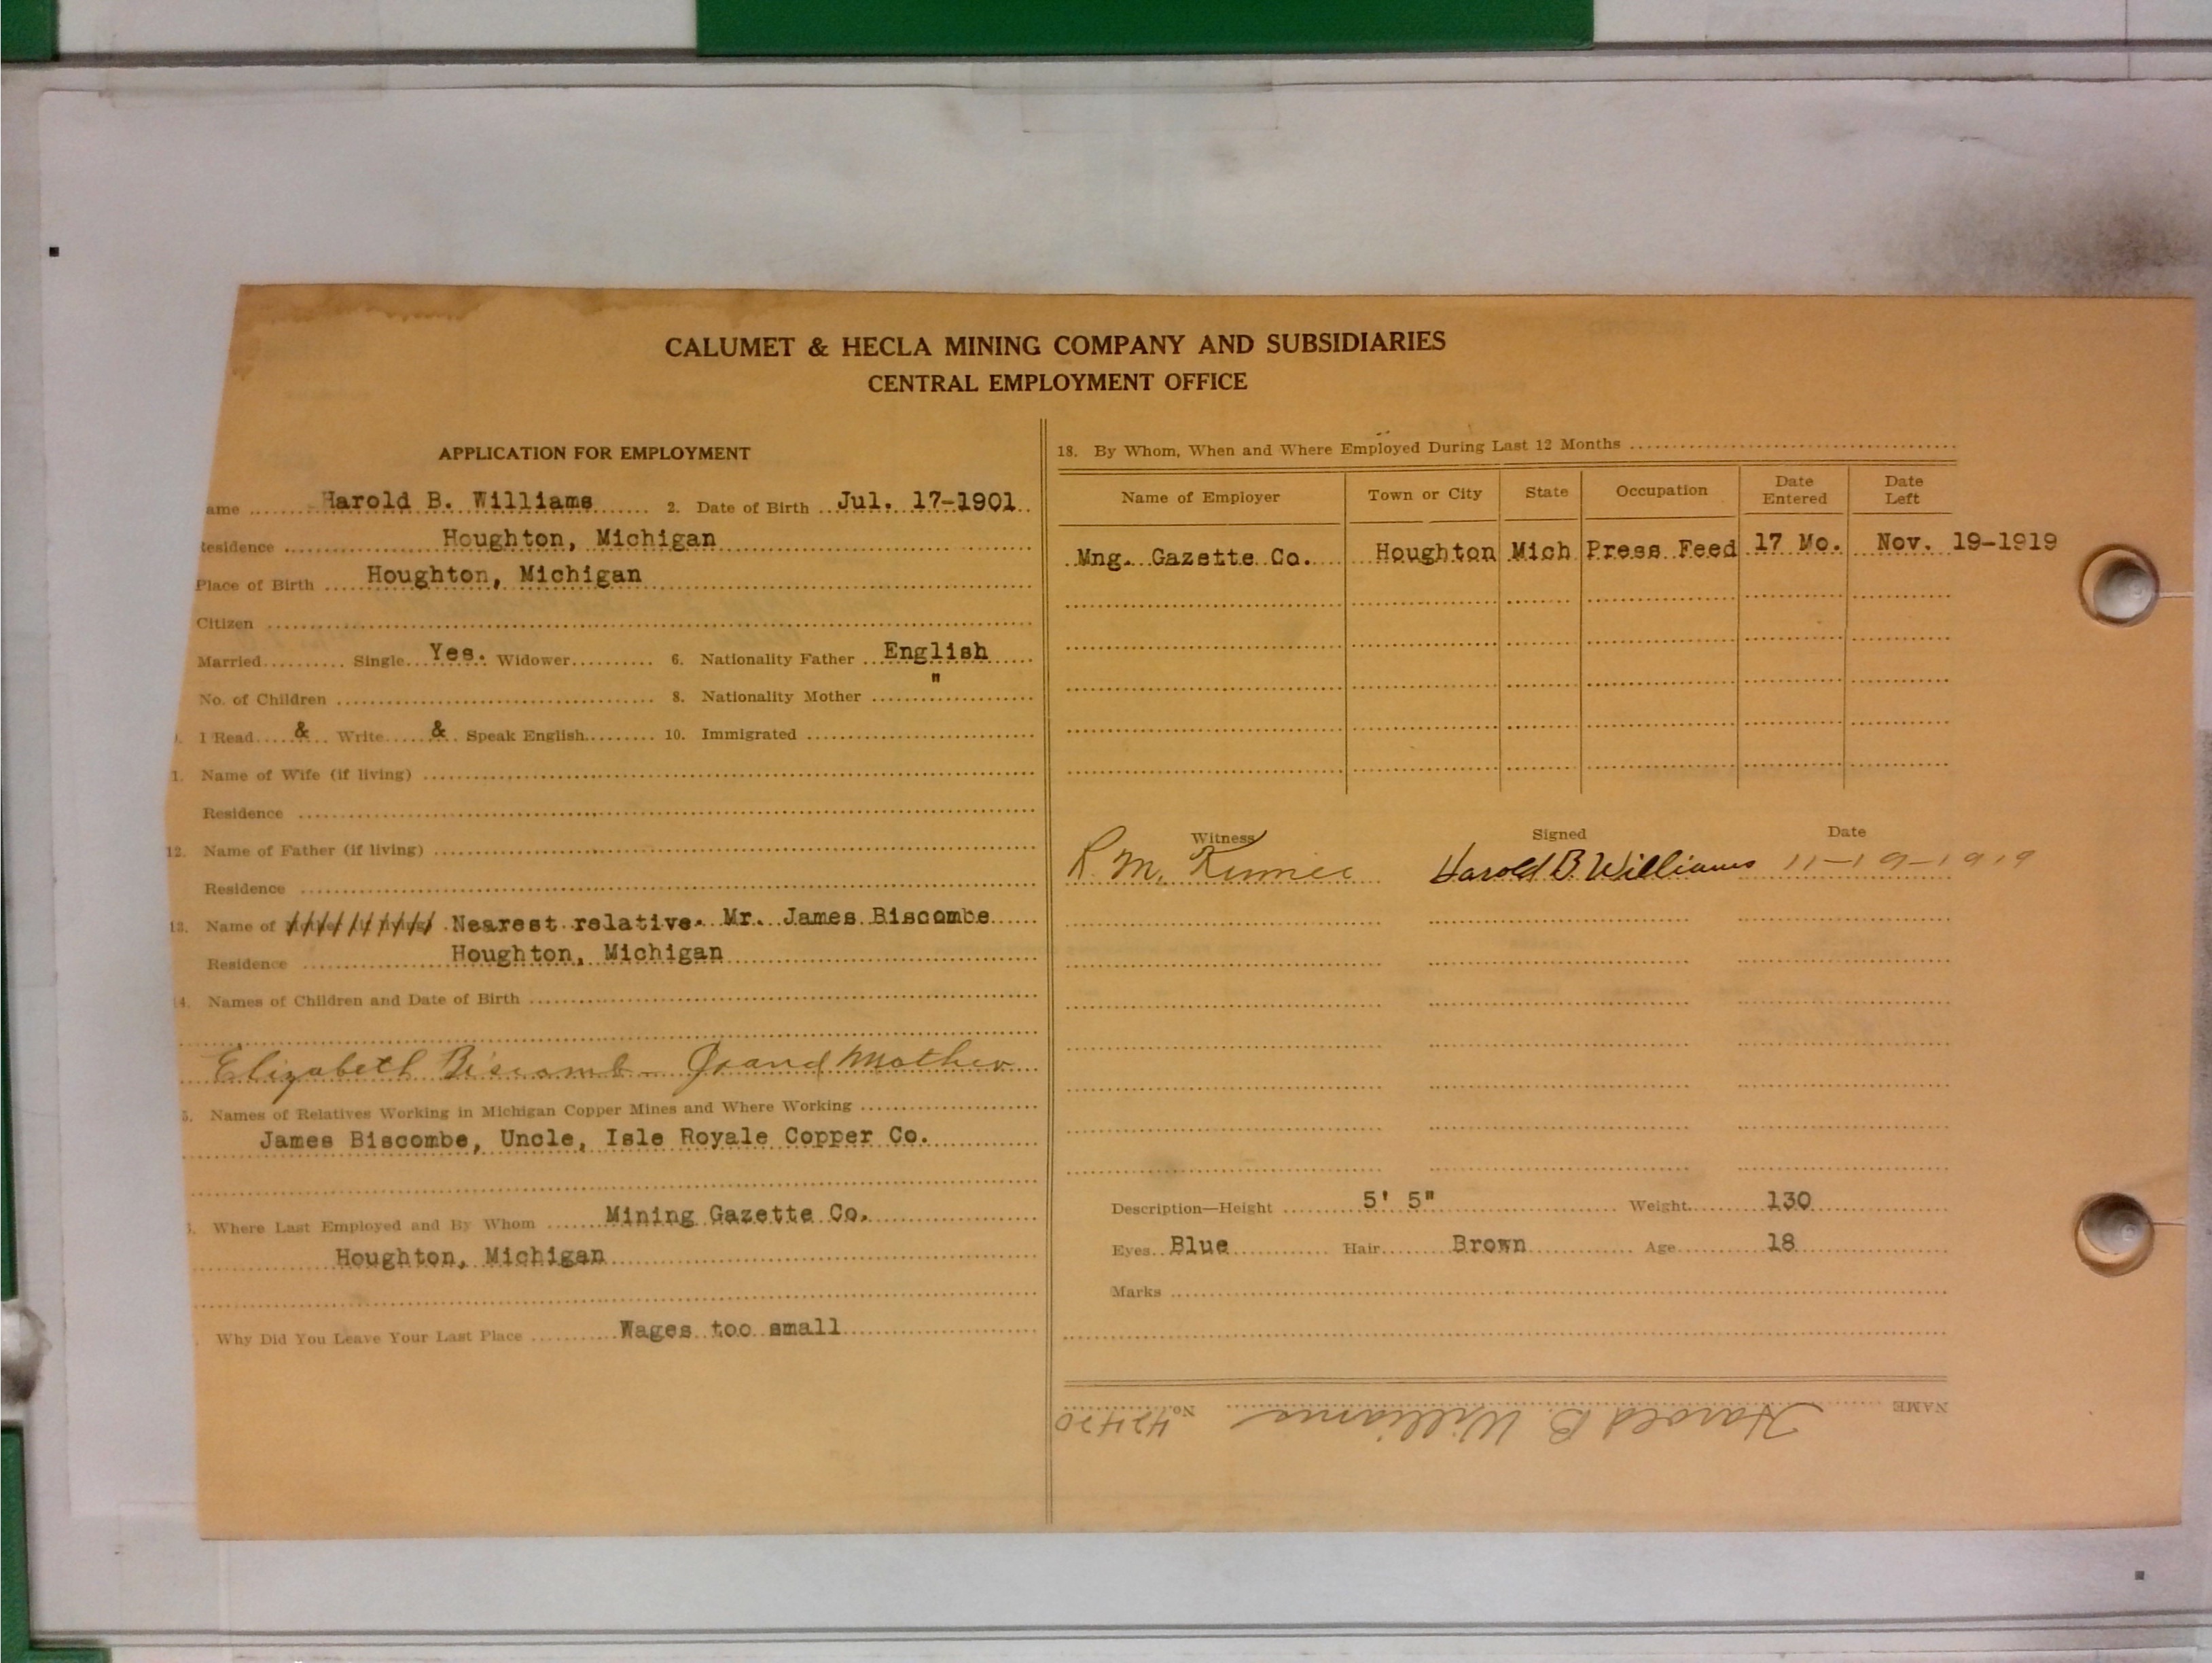 CALUMET & HECLA MINING COMPANY AND SUBSIDIARIES
CENTRAL EMPLOYMENT OFFICE
APPLICATION FOR EMPLOYMENT
ame Harold B. Williams 2. Date of Birth Jul. 17-1901
Residence Houghton, Michigan
Place of Birth Houghton, Michigan
Citizen
Married Single Yes. Widower 6. Nationality Father English
No. of Children 8. Nationality Mother "
I Read & Write & Speak English 10. Immigrated
1. Name of Wife (if living)
Residence
12. Name of Father (if living)
Residence
13. Name of Nearest relative. Mr. James Biscombe
Residence Houghton, Michigan
14. Names of Children and Date of Birth
Elizabeth Biscomb - Grand Mother
5. Names of Relatives Working in Michigan Copper Mines and Where Working
James Biscombe, Uncle, Isle Royale Copper Co.
Where Last Employed and By Whom Mining Gazette Co.
Houghton, Michigan
Why Did You Leave Your Last Place Wages too small
18. By Whom, When and Where Employed During Last 12 Months
Name of Employer Town or City State Occupation Date Entered Date Left
Mng. Gazette Co. Houghton Mich Press Feed 17 Mo. Nov. 19-1919
Witness Signed Date
R. M. Harold B. Williams 11-19-1919
Description—Height 5' 5" Weight 130
Eyes Blue Hair Brown Age 18
Marks
NAME Harold B. Williams No. 42420